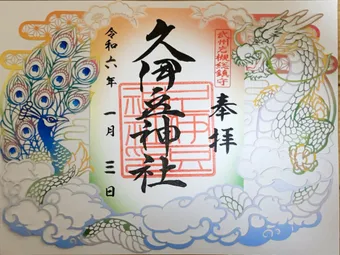 奉拝
武州岩槻総鎮守
久伊豆神社
令和六年一月三日